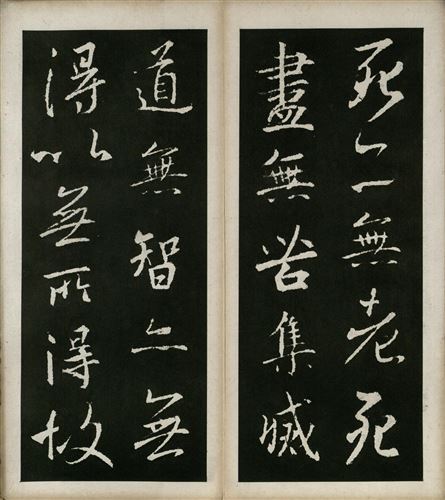 死亦無老死
盡無苦集滅
道無智亦無
得以無所得故